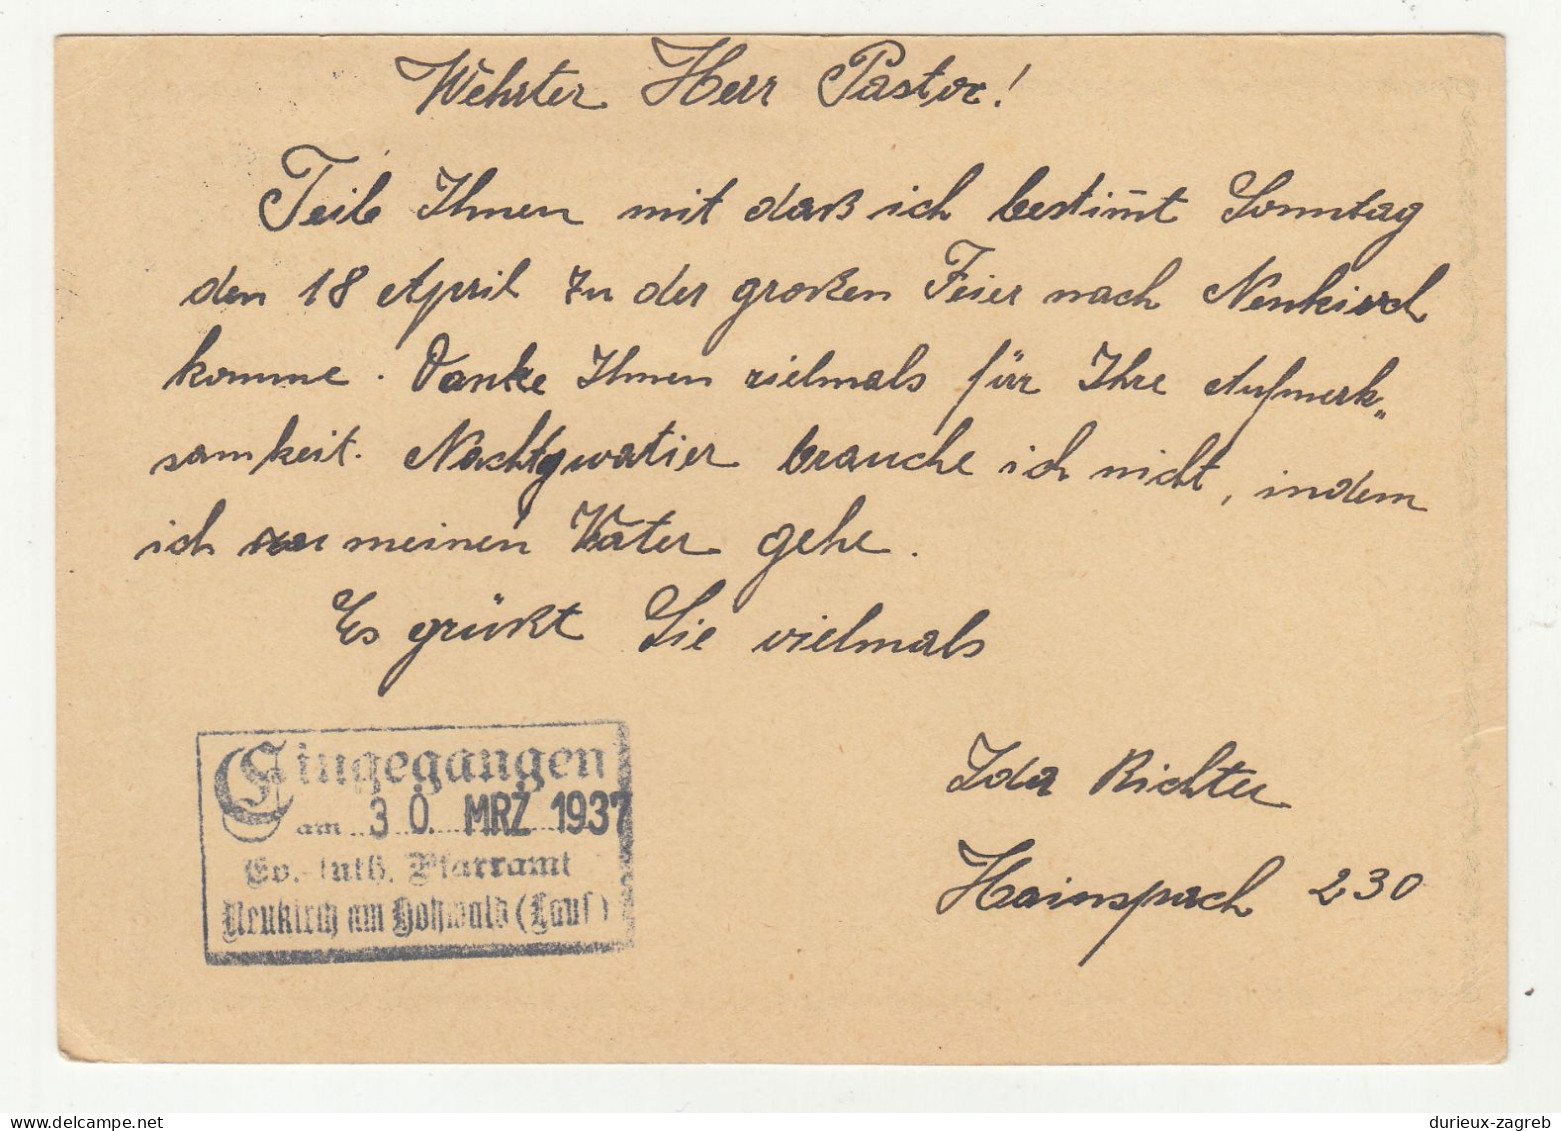 Wehrter Herr Pastor!
Teile Ihnen mit daß ich bestim̅t Sonntag
den 18 April zu der großen Feier nach Neukirch
komme. Danke Ihnen vielmals für Ihre Aufmerk„
samkeit. Nachtquartier brauche ich nicht, indem
ich zu meinen Vater gehe.
Es grüßt Sie vielmals
Ida Richter
Hainspach 230
Eingegangen
am 30. MRZ 1937
Ev.-luth. Pfarramt
Neukirch am Hochwald (Laus)
delcampe.net
durieux-zagreb